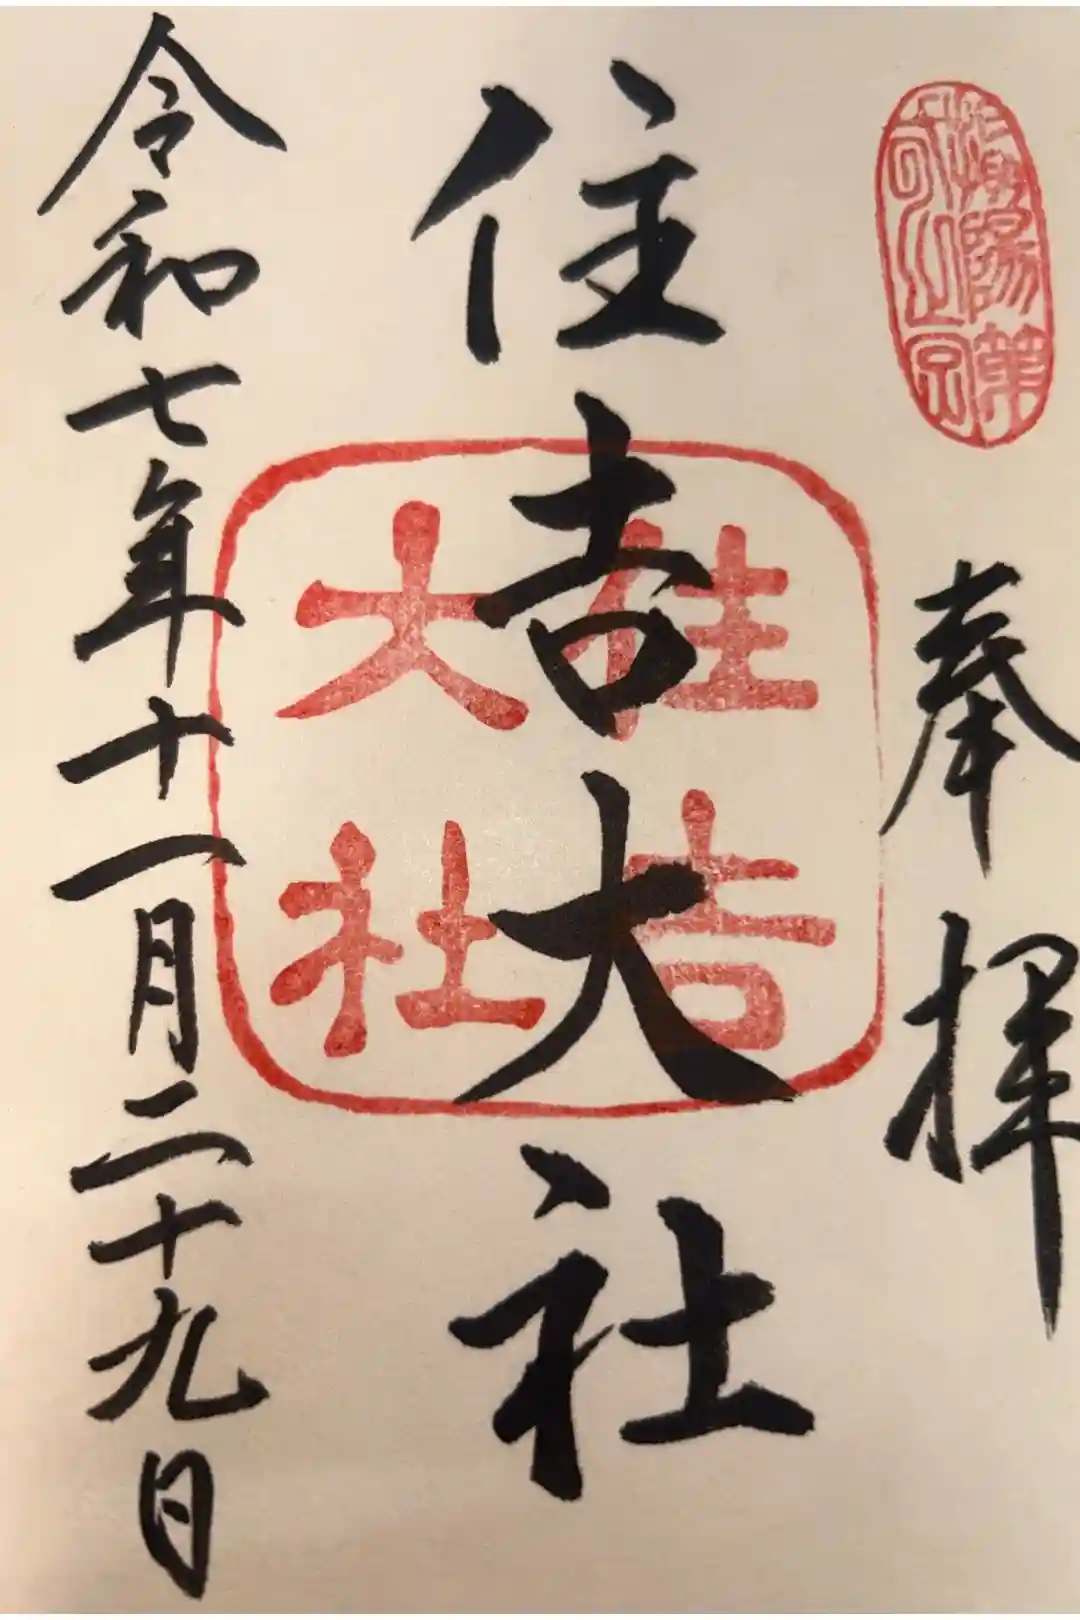 奉拝
住吉大社
住吉
大社
令和七年十一月二十九日